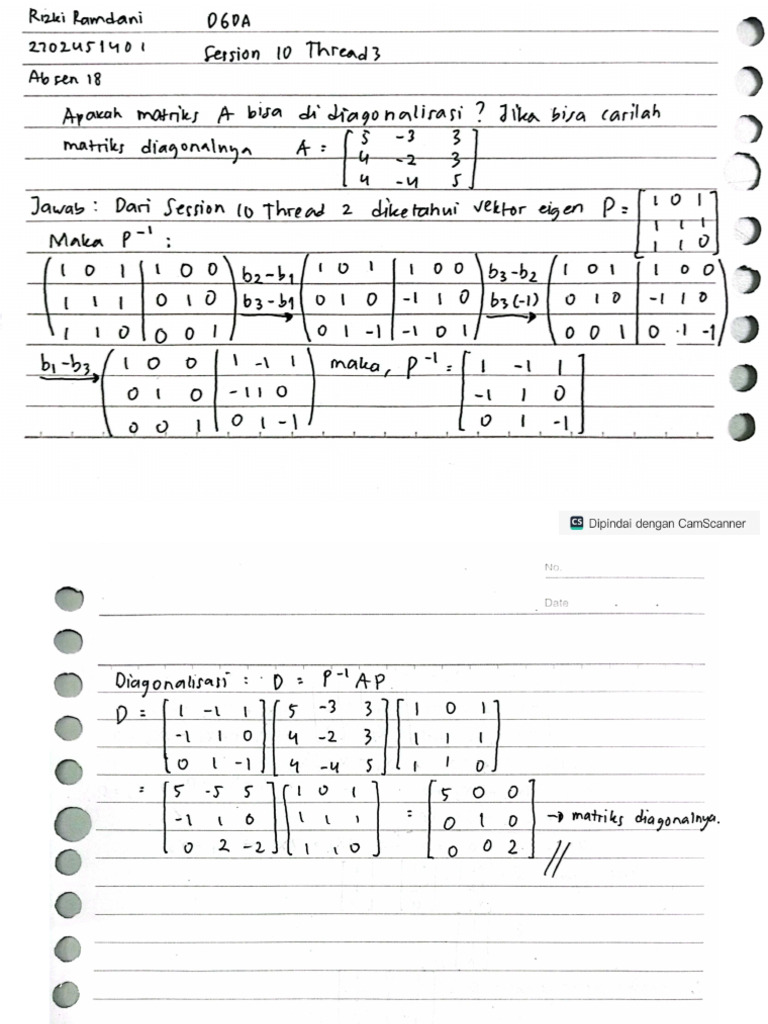 Rizki Ramdani D6DA
2702451401 Session 10 Thread 3
Absen 18
Apakah matriks A bisa di diagonalisasi? Jika bisa carilah
matriks diagonalnya A = [5 -3 3
4 -2 3
4 -4 5]
Jawab: Dari Session 10 Thread 2 diketahui vektor eigen P = [1 0 1
1 1 1
1 1 0]
Maka P⁻¹ :
(1 0 1 | 1 0 0) b2-b1 (1 0 1 | 1 0 0) b3-b2 (1 0 1 | 1 0 0)
(1 1 1 | 0 1 0) b3-b1 → (0 1 0 | -1 1 0) b3(-1) → (0 1 0 | -1 1 0)
(1 1 0 | 0 0 1) (0 1 -1 | -1 0 1) (0 0 1 | 0 1 -1)
b1-b3 → (1 0 0 | 1 -1 1) maka, P⁻¹ = [1 -1 1
(0 1 0 | -1 1 0) -1 1 0
(0 0 1 | 0 1 -1) 0 1 -1]
CS Dipindai dengan CamScanner
No.
Date
Diagonalisasi : D = P⁻¹ A P.
D = [1 -1 1] [5 -3 3] [1 0 1]
[-1 1 0] [4 -2 3] [1 1 1]
[0 1 -1] [4 -4 5] [1 1 0]
= [5 -5 5] [1 0 1] = [5 0 0]
[-1 1 0] [1 1 1] [0 1 0] → matriks diagonalnya.
[0 2 -2] [1 1 0] [0 0 2] //